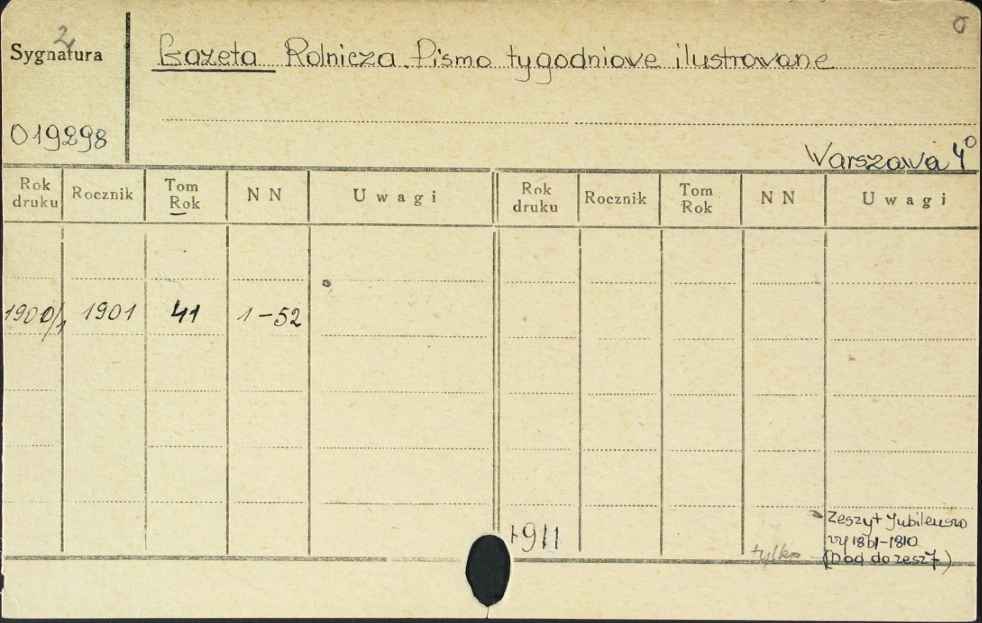 2
0
Sygnatura
Gazeta Rolnicza. Pismo tygodniowe ilustrowane
019298
Warszawa 4°
Rok druku Rocznik Tom Rok NN Uwagi Rok druku Rocznik Tom Rok NN Uwagi
1900/1 1901 41 1-52
1911 tylko Zeszyt Jubileuszo
wy 1861-1910
(Dod do zesz 7)